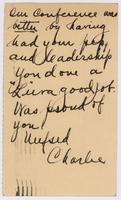 Our Conference was
better by having
had your pep
and leadership
You done a
good job.
Was proud of
you!
Charlie